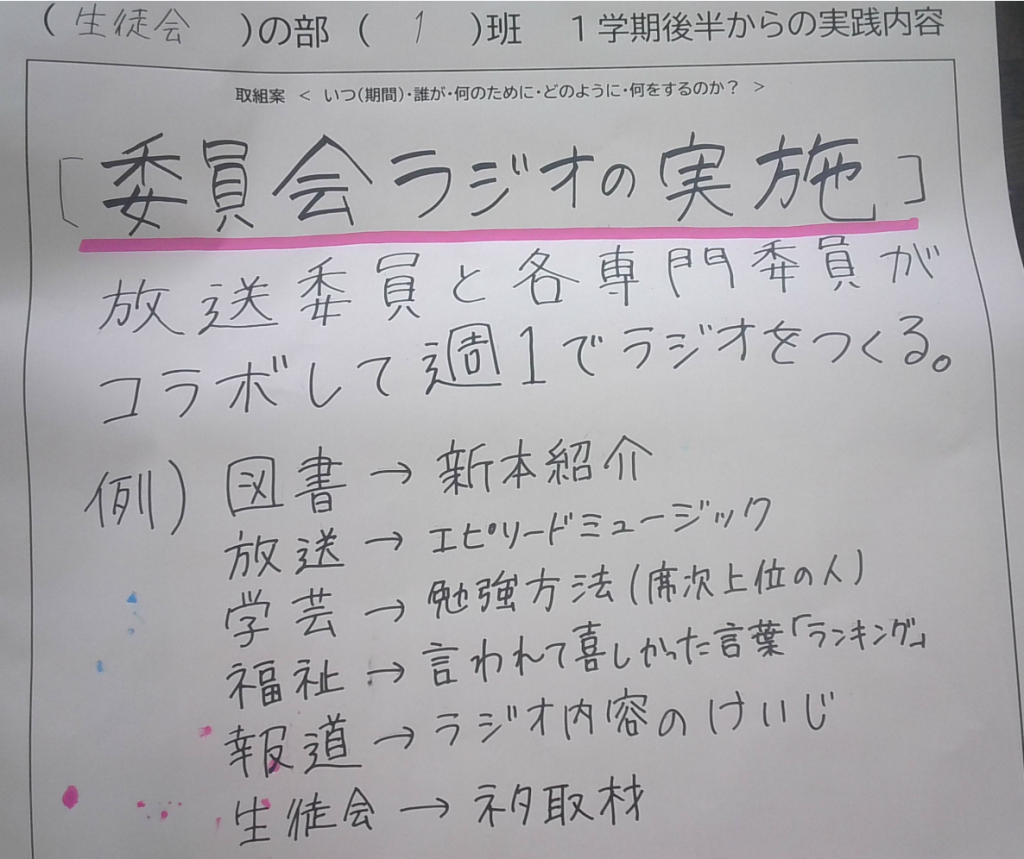 （ 生徒会 ）の部 （ 1 ）班 １学期後半からの実践内容
取組案 ＜ いつ(期間)・誰が・何のために・どのように・何をするのか？ ＞
［委員会ラジオの実施］
放送委員と各専門委員が
コラボして週1でラジオをつくる。
例）図書→新本紹介
放送→エピソードミュージック
学芸→勉強方法(席次上位の人)
福祉→言われて喜しかった言葉「ランキング」
報道→ラジオ内容のけいじ
生徒会→ネタ取材